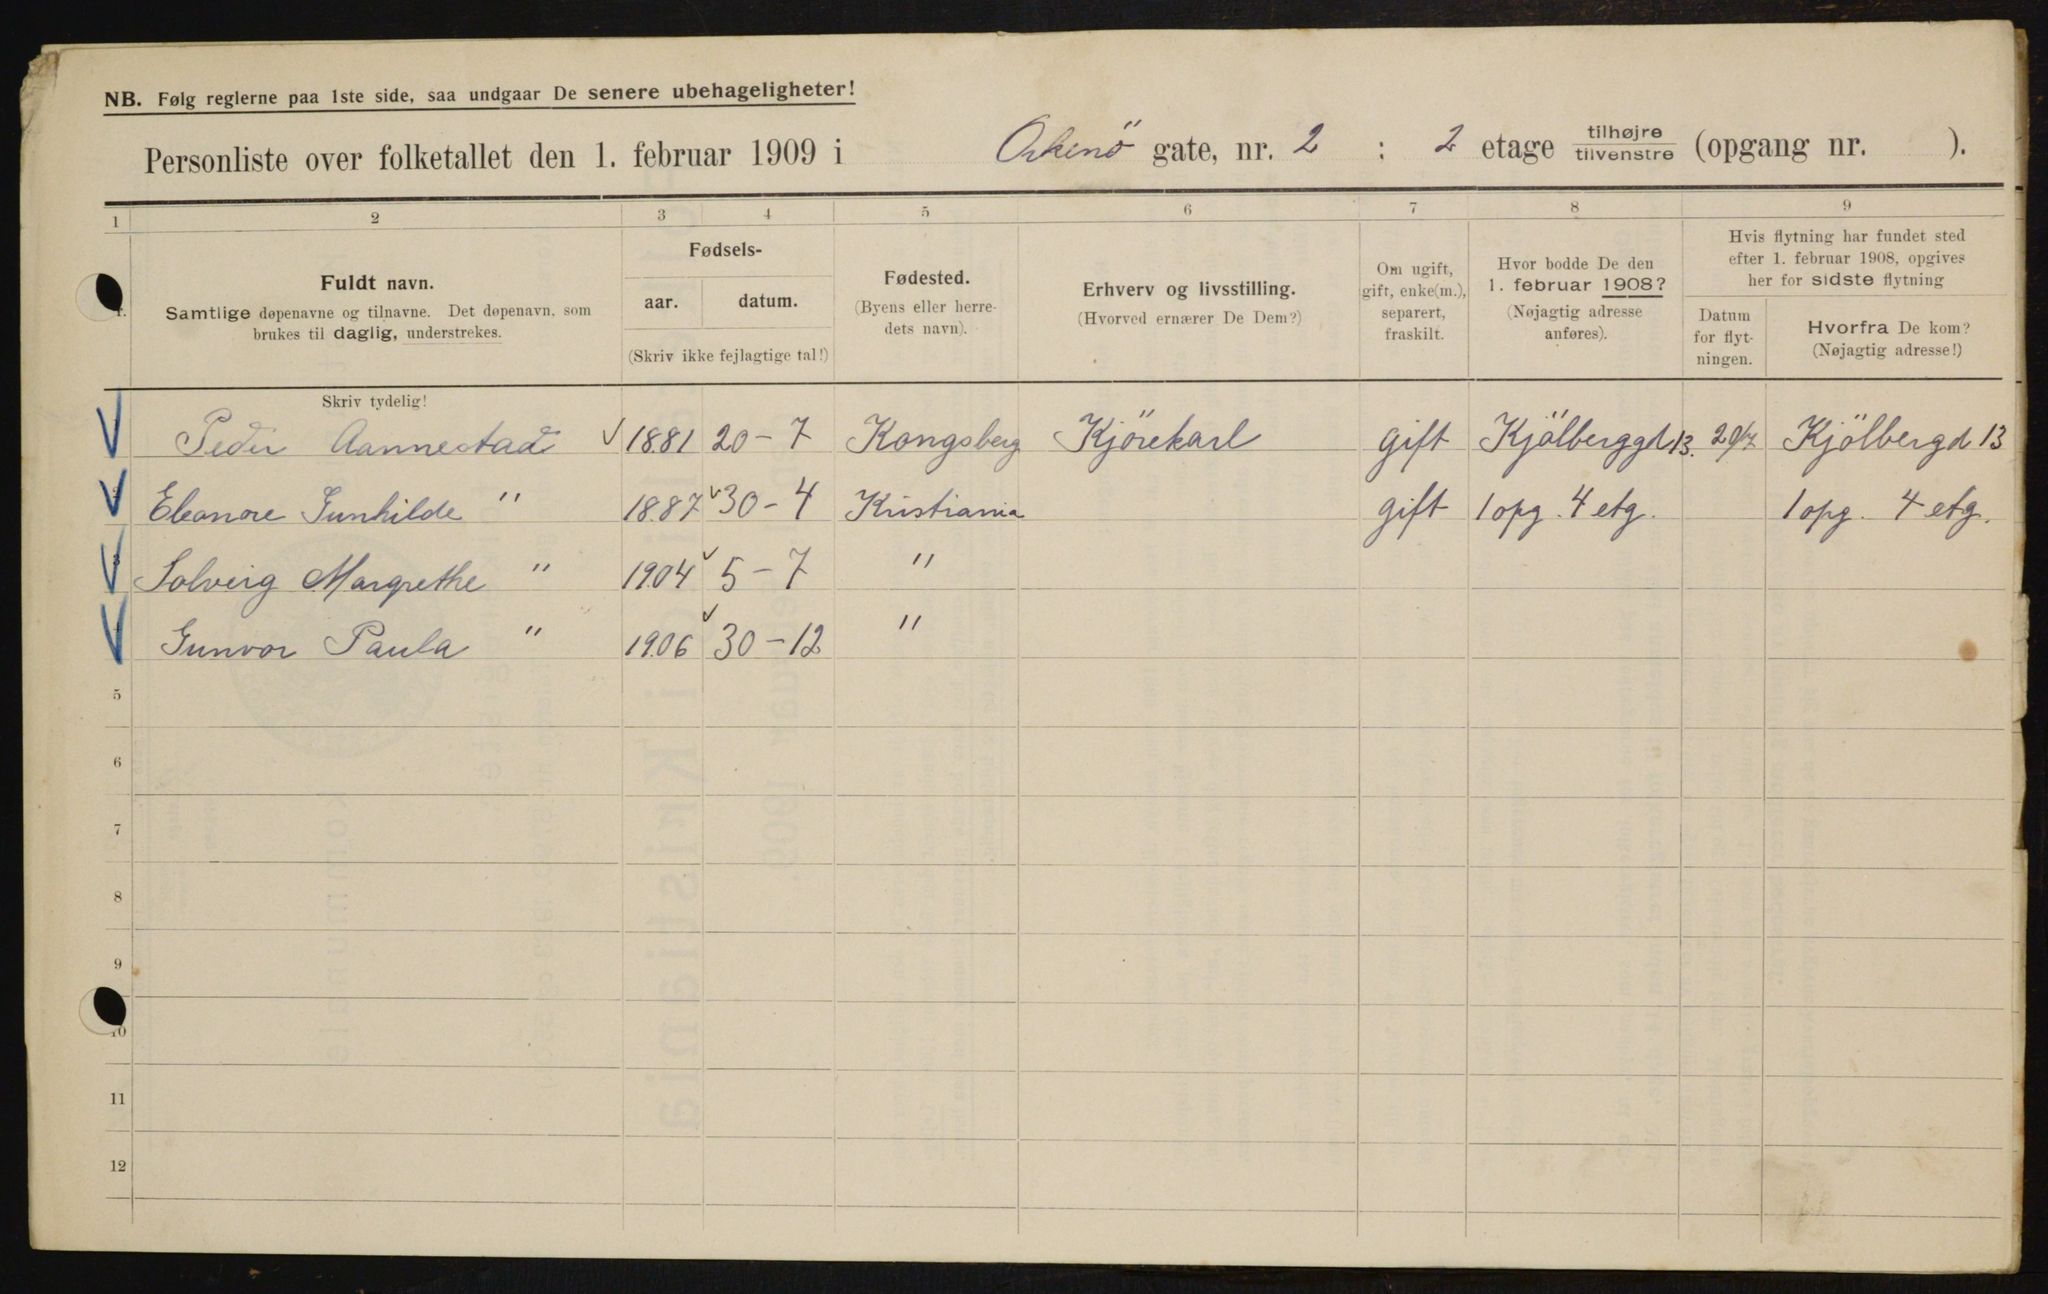 NB. Følg reglerne paa 1ste side, saa undgaar De senere ubehageligheter!
Personliste over folketallet den 1. februar 1909 i Orkenö gate, nr. 2 : 2 etage tilhøjre tilvenstre (opgang nr. ).
1 2 3 4 5 6 7 8 9
Fuldt navn.
Samtlige døpenavne og tilnavne. Det døpenavn, som
brukes til daglig, understrekes.
Fødsels-
aar. datum.
(Skriv ikke fejlagtige tal!)
Fødested.
(Byens eller herre-
dets navn).
Erhverv og livsstilling.
(Hvorved ernærer De Dem?)
Om ugift,
gift, enke(m.),
separert,
fraskilt.
Hvor bodde De den
1. februar 1908?
(Nøjagtig adresse
anføres).
Hvis flytning har fundet sted
efter 1. februar 1908, opgives
her for sidste flytning
Datum
for flyt-
ningen.
Hvorfra De kom?
(Nøjagtig adresse!)
Skriv tydelig!
Peder Aannestad 1881 20-7 Kongsberg Kjörekarl gift Kjölberggd 13. Kjölbergd 13
Eleonore Gunhilde " 1887 30-4 Kristiania gift 1 opg. 4 etg. 1 opg. 4 etg.
Solveig Margrethe " 1904 5-7 "
Gunvor Paula " 1906 30-12 "
5
6
7
8
9
10
11
12